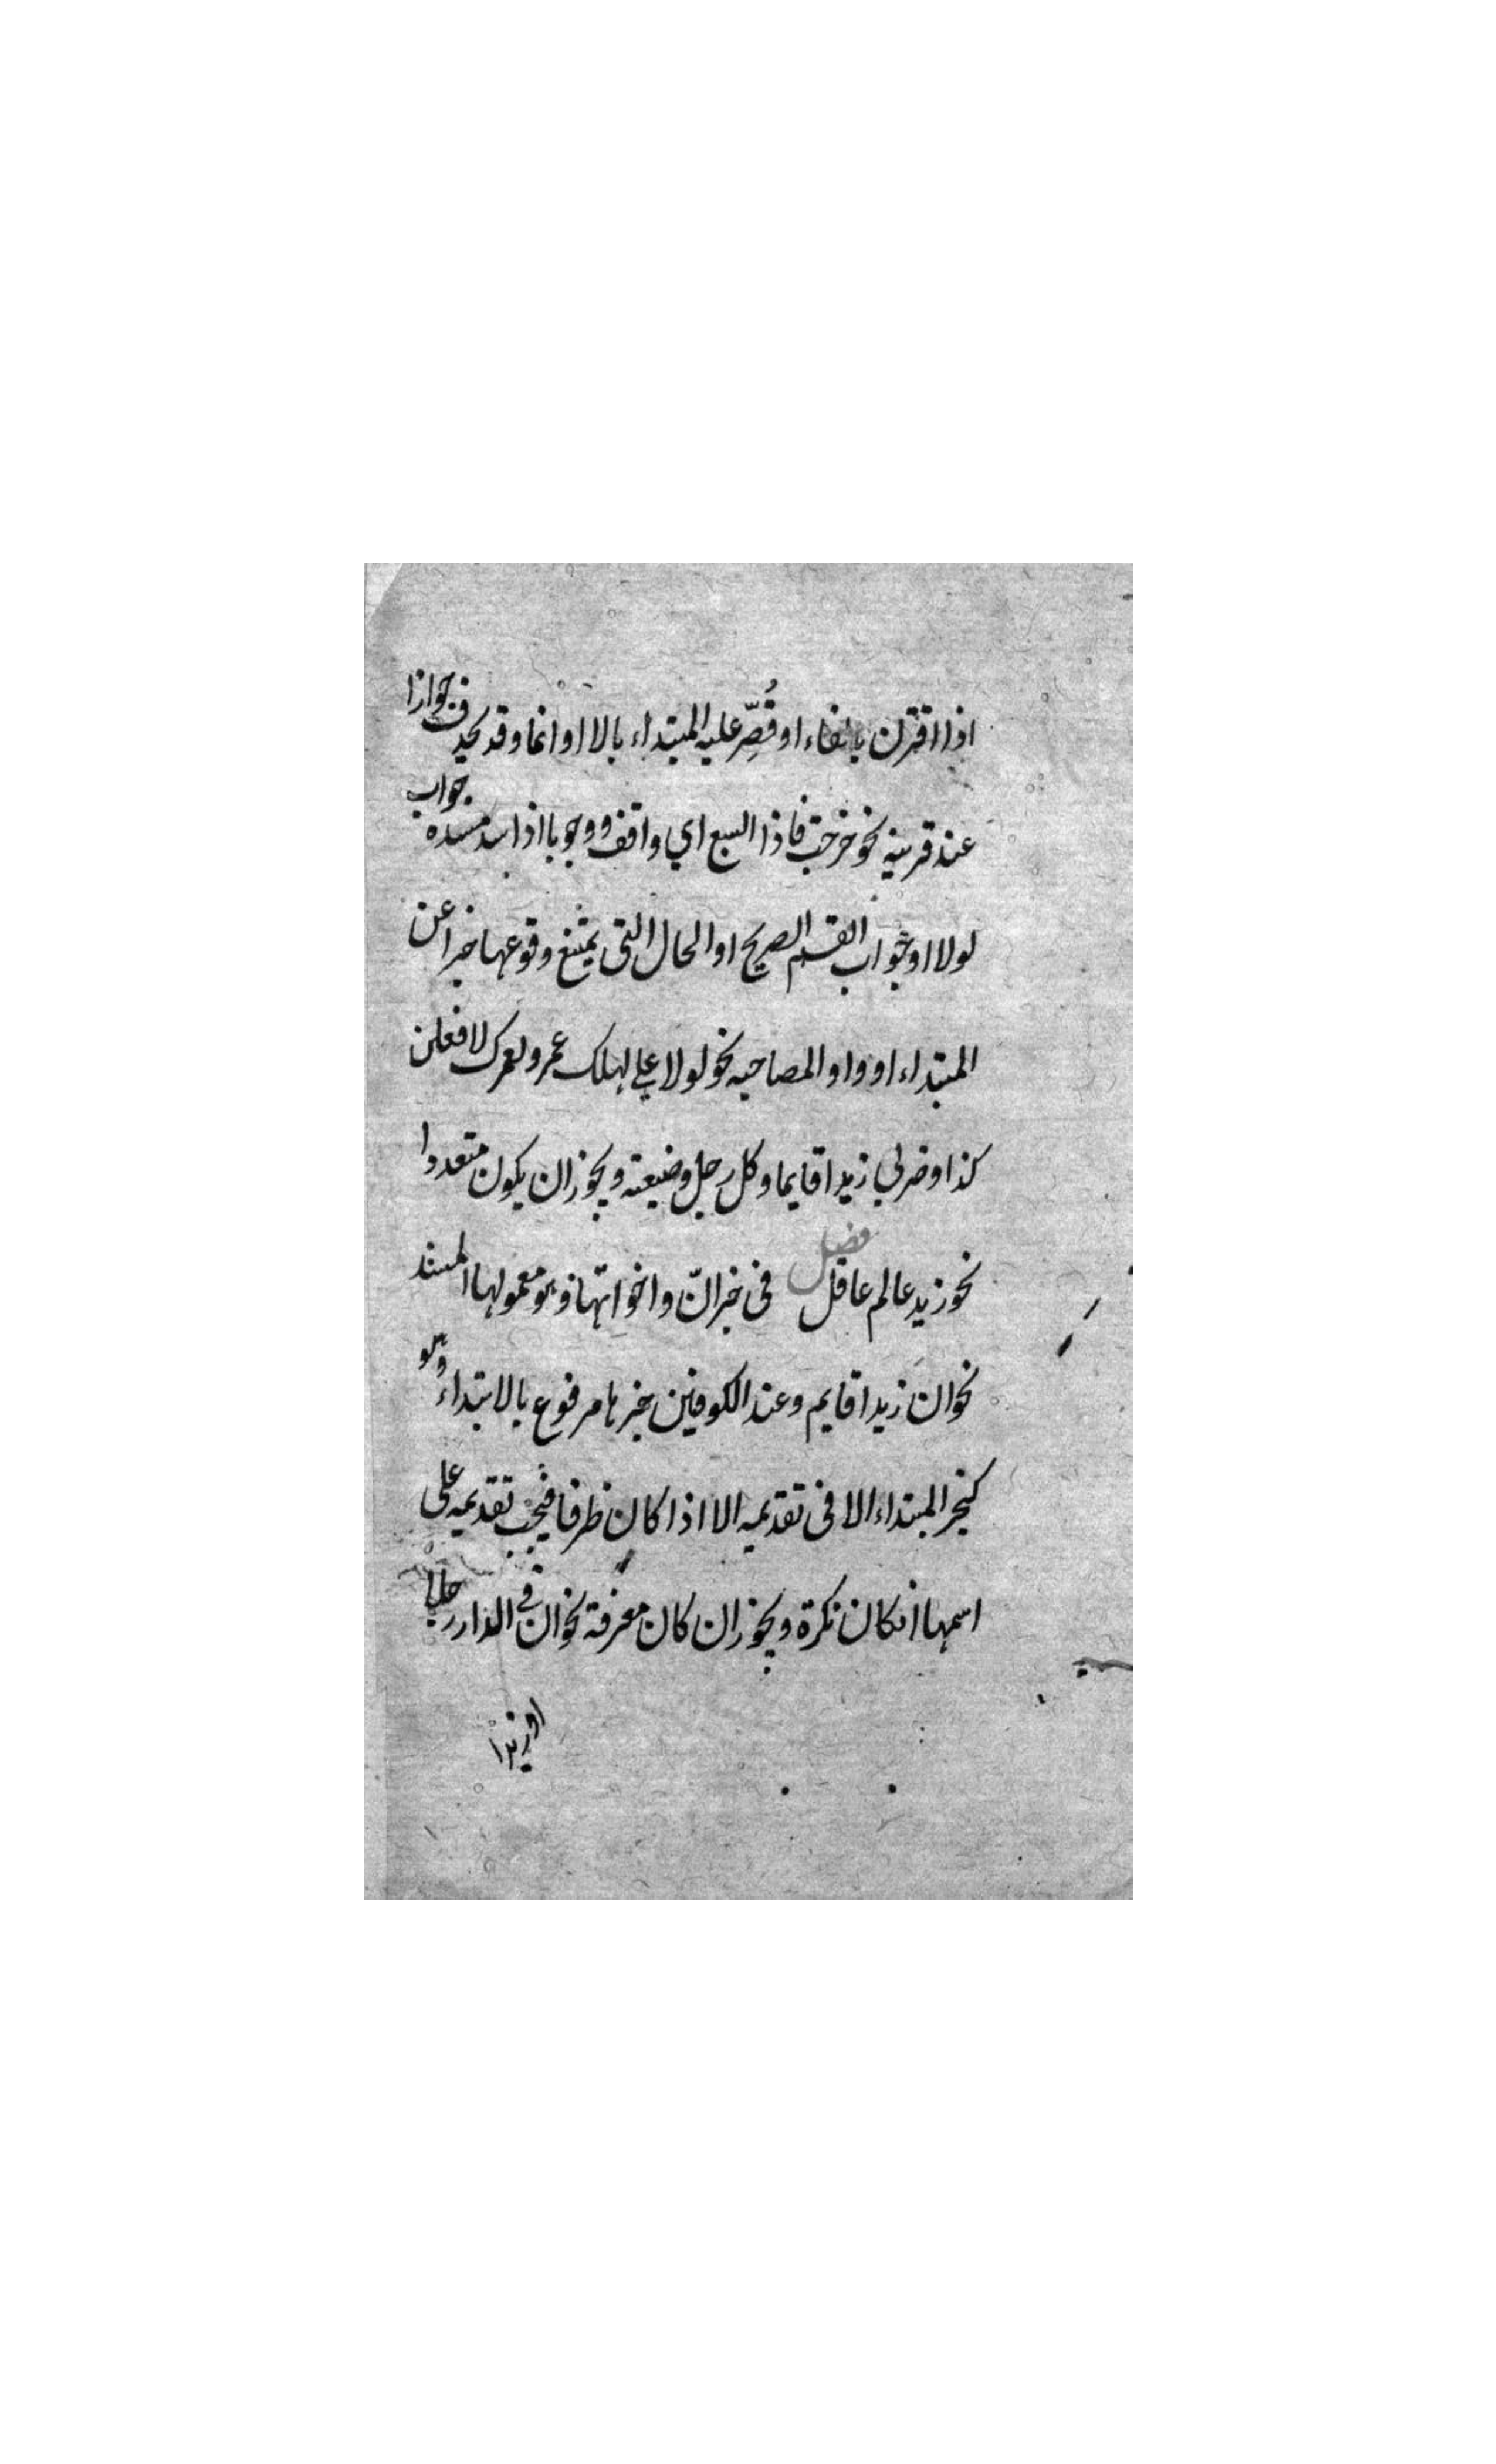 اذا اقترن بالفاء او قُصِّر عليه المبتداء بالا او انما وقد يحذف جوازا
عند قرينة نحو خرجت فاذا السبع اي واقف ووجوبا اذا سد مسده جواب
لولا او جواب القسم الصريح او الحال التى يمتنع وقوعها خبرا عن
المبتداء او واو المصاحبه نحو لولا علي لهلك عمر ولعمرك لافعلن
كذا وضربي زيدا قايما وكل رجل وضيعته ويجوز ان يكون متعددا
فصل
نحو زيد عالم عاقل فى خبر انّ واخواتها وهو معمولها المسند
نحو ان زيدا قايم وعند الكوفين خبرها مرفوع بالابتداء وهو
كخبر المبتداء الا فى تقديمه الا اذا كان ظرفا فيجب تقديمه على
اسمها ان كان نكرة ويجوز ان كان معرفة نحو ان فى الدار رجلا
او زيدا